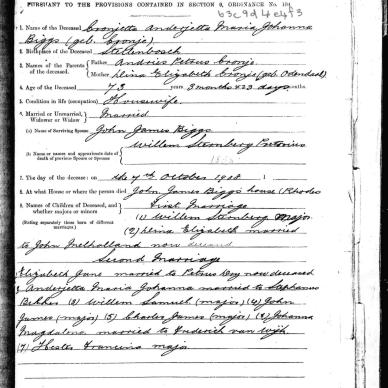 PURSUANT TO THE PROVISIONS CONTAINED IN SECTION 9, ORDINANCE No. 104
b3c9d4e4f3
1. Name of the Deceased Cronjetta Anderjetta Maria Johanna
Biggs (geb. Cronje)
2. Birthplace of the Deceased Stellenbosch
3. Names of the Parents of the deceased. Father Andries Petrus Cronje
Mother Lina Elizabeth Cronje (geb. Odendaal)
4. Age of the Deceased 73 years 3 months & 23 days months
5. Condition in life (occupation) Housewife
6. Married or Unmarried, Widower or Widow Married
(a) Name of Surviving Spouse John James Biggs
Willem Sternberg Pretorius
(b) Name or names and approximate date of death of previous Spouse or Spouses
7. The day of the decease: on the 7th October 1908
8. At what House or where the person died John James Biggs house (Rhodes
9. Names of Children of Deceased, and whether majors or minors First Marriage
(Stating separately those born of different marriages.) (1) Willem Sternberg major
(2) Lina Elizabeth married
to John Melholland now
Second Marriage
Elizabeth Jane married to Petrus Cloy now deceased
2 Anderjetta Maria Johanna married to Stephanus
Bekker (3) Willem Samuel (major) (4) John
James (major) (5) Charles James (major) (6) Johanna
Magdalena married to Frederich van Wijk
(7) Hester Francina major